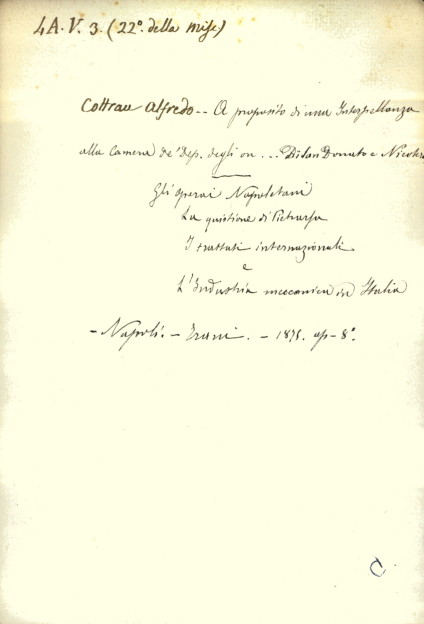 4A. V. 3. (22º. della Misc)
Cottrau Alfredo -- A proposito di una Interpellanza
alla Camera de' Dep. degli on... Di San Donato e Nicotera
Gli operai Napoletani
La quistione di Pietrarsa
I trattati internazionali
e
L'Industria meccanica in Italia
- Napoli. - Trani. - 187 op - 8º.
C